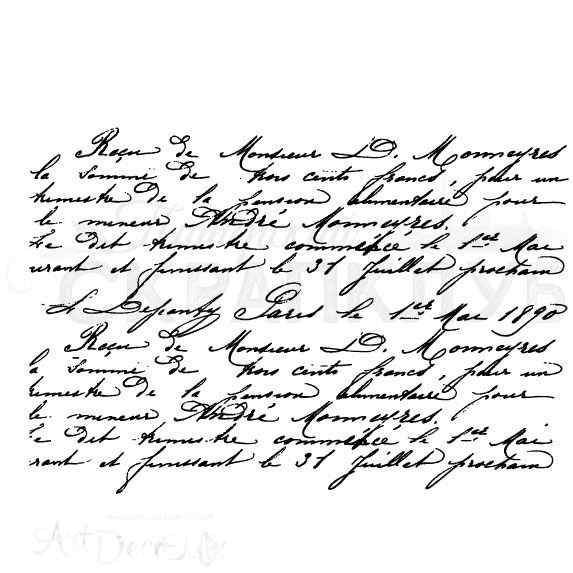 Reçu de Monsieur D. Monneyres
la Somme de trois cents francs, pour un
trimestre De la pension alimentaire pour
le mineur André Monneyres.
Le dit trimestre commencé le 1er Mai
urant et finissant le 31 Juillet prochain
Paris le 1er Mai 1890
СКРАПКЛУБ
Reçu de Monsieur D. Monneyres
la Somme de trois cents francs, pour un
trimestre De la pension alimentaire pour
le mineur André Monneyres.
Le dit trimestre commencé le 1er Mai
rant et finissant le 31 Juillet prochain
Art Decor